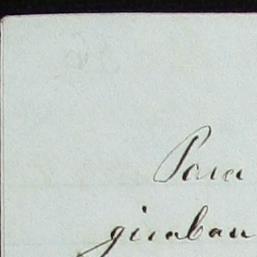 Para
giraban